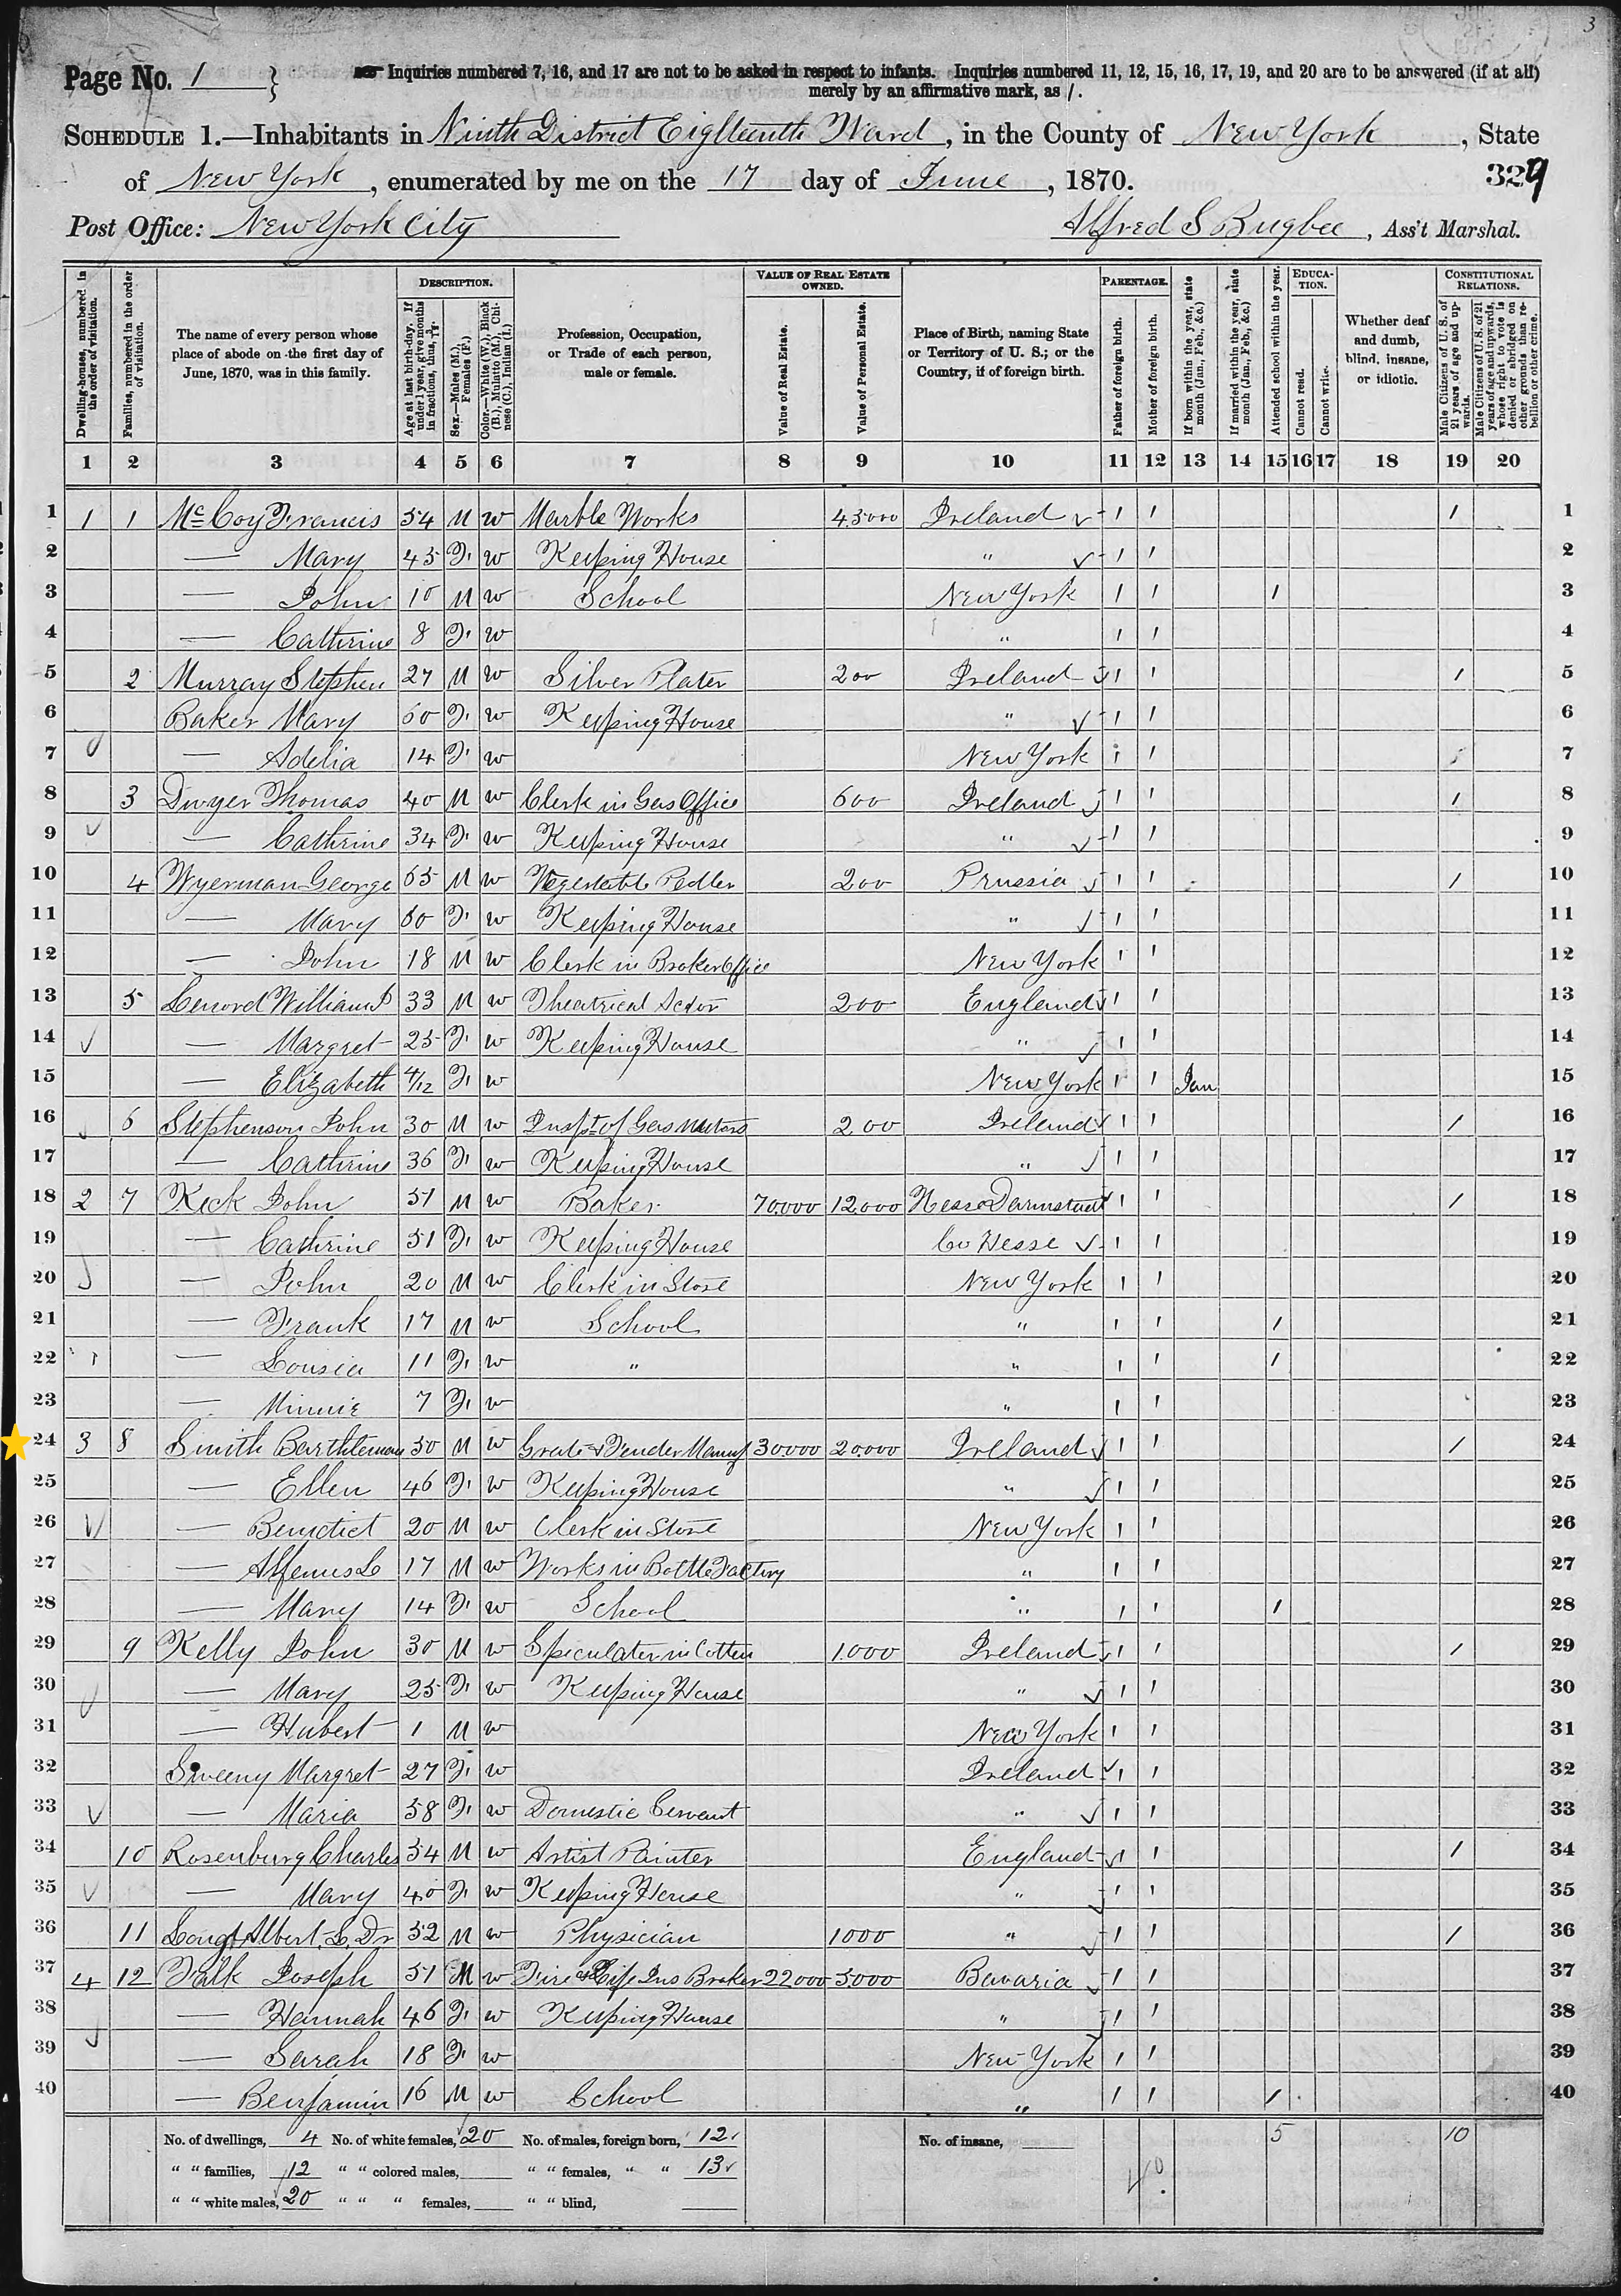 3
Page No. 1 } Inquiries numbered 7, 16, and 17 are not to be asked in respect to infants. Inquiries numbered 11, 12, 15, 16, 17, 19, and 20 are to be answered (if at all)
merely by an affirmative mark, as /.
SCHEDULE 1.—Inhabitants in Ninth District Eighteenth Ward, in the County of New York, State
of New York, enumerated by me on the 17 day of June, 1870.
329
Post Office: New York City
Alfred S Bugbee, Ass't Marshal.
Dwelling-houses, numbered in the order of visitation.
Families, numbered in the order of visitation.
The name of every person whose place of abode on the first day of June, 1870, was in this family.
DESCRIPTION.
Age at last birth-day. If under 1 year, give months in fractions, thus, 3/12.
Sex.—Males (M.), Females (F.)
Color.—White (W.), Black (B.), Mulatto (M.), Chinese (C.), Indian (I.)
Profession, Occupation, or Trade of each person, male or female.
VALUE OF REAL ESTATE OWNED.
Value of Real Estate.
Value of Personal Estate.
Place of Birth, naming State or Territory of U. S.; or the Country, if of foreign birth.
PARENTAGE.
Father of foreign birth.
Mother of foreign birth.
If born within the year, state month (Jan., Feb., &c.)
If married within the year, state month (Jan., Feb., &c.)
Attended school within the year.
EDUCATION.
Cannot read.
Cannot write.
Whether deaf and dumb, blind, insane, or idiotic.
CONSTITUTIONAL RELATIONS.
Male Citizens of U. S. of 21 years of age and upwards.
Male Citizens of U. S. of 21 years of age and upwards, whose right to vote is denied or abridged on other grounds than rebellion or other crime.
1 2 3 4 5 6 7 8 9 10 11 12 13 14 15 16 17 18 19 20
1 1 1 McCoy Francis 54 M W Marble Works 43000 Ireland 1 1 1 1
2 — Mary 45 F W Keeping House " 1 1 2
3 — John 10 M W School New York 1 1 1 3
4 — Cathrine 8 F W " 1 1 4
5 2 Murray Stephen 27 M W Silver Plater 200 Ireland 1 1 1 5
6 Baker Mary 60 F W Keeping House " 1 1 6
7 — Adelia 14 F W New York 1 1 7
8 3 Dwyer Thomas 40 M W Clerk in Gas Office 600 Ireland 1 1 1 8
9 — Cathrine 34 F W Keeping House " 1 1 9
10 4 Wyerman George 65 M W Vegetable Pedler 200 Prussia 1 1 1 10
11 — Mary 60 F W Keeping House " 1 1 11
12 — John 18 M W Clerk in Broker Office New York 1 1 12
13 5 Lenord William 33 M W Theatrical Actor 200 England 1 1 13
14 — Margret 25 F W Keeping House " 1 1 14
15 — Elizabeth 4/12 F W New York 1 1 Jan 15
16 6 Stephenson John 30 M W Inspt of Gas Meters 200 Ireland 1 1 1 16
17 — Cathrine 36 F W Keeping House " 1 1 17
18 2 7 Keck John 51 M W Baker 70000 12000 Hesse Darmstadt 1 1 1 18
19 — Cathrine 51 F W Keeping House Co Hesse 1 1 19
20 — John 20 M W Clerk in Store New York 1 1 20
21 — Frank 17 M W School " 1 1 1 21
22 — Lousia 11 F W " " 1 1 1 22
23 — Minnie 7 F W " 1 1 23
24 3 8 Smith Barthlemew 50 M W Grate & Fender Manuf 30000 20000 Ireland 1 1 1 24
25 — Ellen 46 F W Keeping House " 1 1 25
26 — Benedict 20 M W Clerk in Store New York 1 1 26
27 — 17 M W Works in Bottle Factory " 1 1 27
28 — Mary 14 F W School " 1 1 1 28
29 9 Kelly John 30 M W Speculater in Cotten 1000 Ireland 1 1 1 29
30 — Mary 25 F W Keeping House " 1 1 30
31 — Hubert 1 M W New York 1 1 31
32 Sweeny Margret 27 F W Ireland 1 1 32
33 — Maria 58 F W Domestic Servant " 1 1 33
34 10 Rosenburg Charles 54 M W Artist Painter England 1 1 1 34
35 — Mary 40 F W Keeping House " 1 1 35
36 11 Albert L. Dr 52 M W Physician 1000 " 1 1 1 36
37 4 12 Falk Joseph 51 M W Fire & Life Ins Broker 22000 5000 Bavaria 1 1 37
38 — Hannah 46 F W Keeping House " 1 1 38
39 — Sarah 18 F W New York 1 1 39
40 — Benjamin 16 M W School " 1 1 1 40
No. of dwellings, 4 No. of white females, 20 No. of males, foreign born, 12 No. of insane, 5 10
" " families, 12 " " colored males, " " females, " " 13
" " white males, 20 " " " females, " " blind,